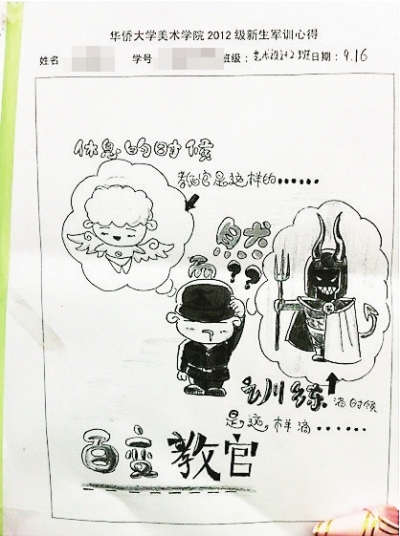 华侨大学美术学院 2012 级新生军训心得
姓名 学号 班级：艺术设计2班 日期：9.16
休息的时候
教官是这样的……
而??
训练滴时候
是这样滴……
百变教官